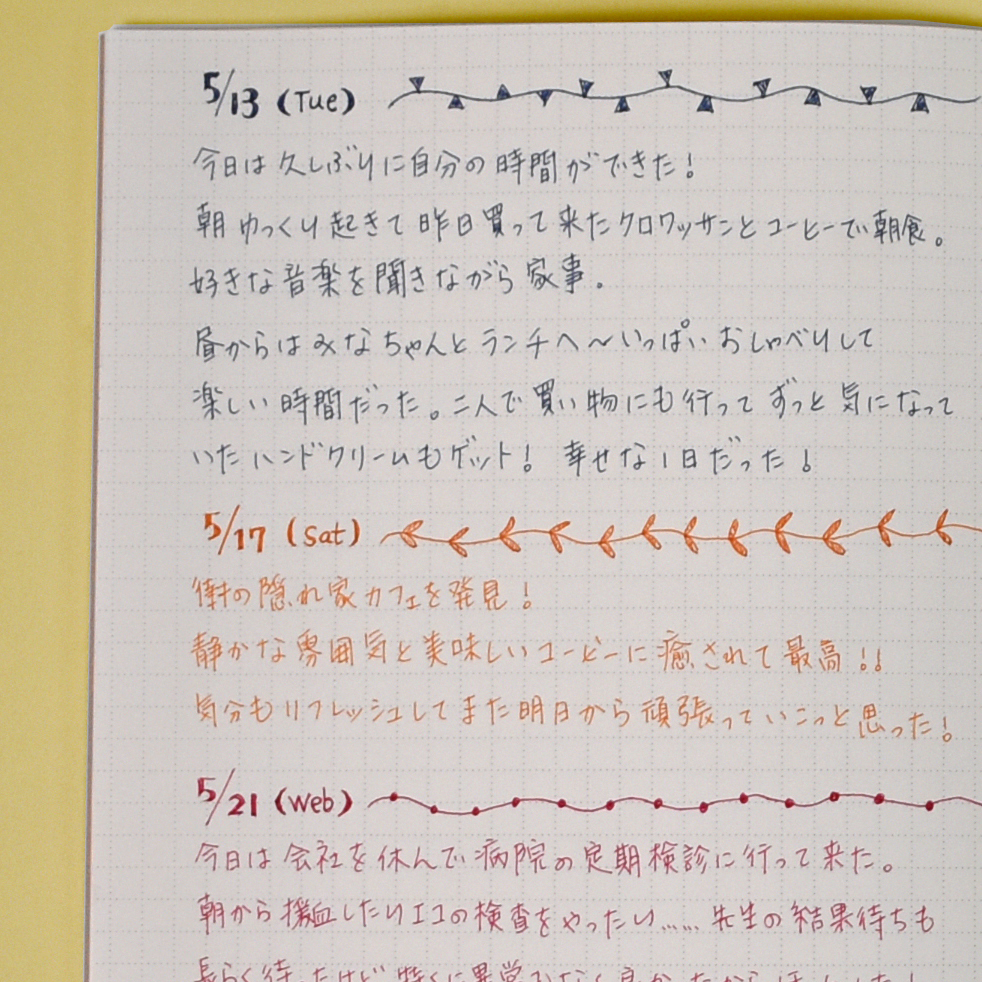 5/13 (Tue)
今日は久しぶりに自分の時間ができた!
朝ゆっくり起きて昨日買って来たクロワッサンとコーヒーで朝食。
好きな音楽を聞きながら家事。
昼からはみなちゃんとランチへ〜いっぱいおしゃべりして
楽しい時間だった。二人で買い物にも行ってずっと気になって
いたハンドクリームもゲット! 幸せな1日だった!
5/17 (Sat)
街の隠れ家カフェを発見!
静かな雰囲気と美味しいコーヒーに癒されて最高!!
気分もリフレッシュしてまた明日から頑張っていこっと思った!
5/21 (Web)
今日は会社を休んで病院の定期検診に行って来た。
朝から採血したりエコの検査をやったり……先生の結果待ちも
長らく待ったけど特に異常もなく良かったから